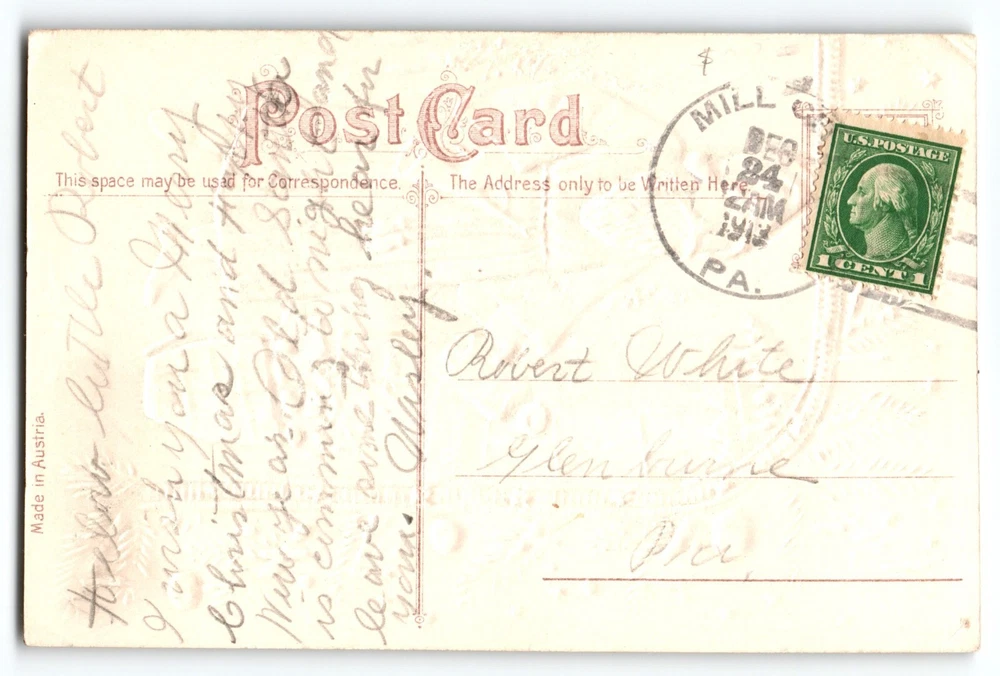 Post Card
This space may be used for Correspondence.
The Address only to be Written Here.
MILL
DEC
24
2 AM
1913
PA.
U.S. POSTAGE
1 CENT 1
Made in Austria.
Hellow little Robert
I wish you a Mary
Christmas and Happy
Newyear. Old Santa
is comming to night and
leave some thing hear for
you. Wesley.
Robert White
Glen
Pa